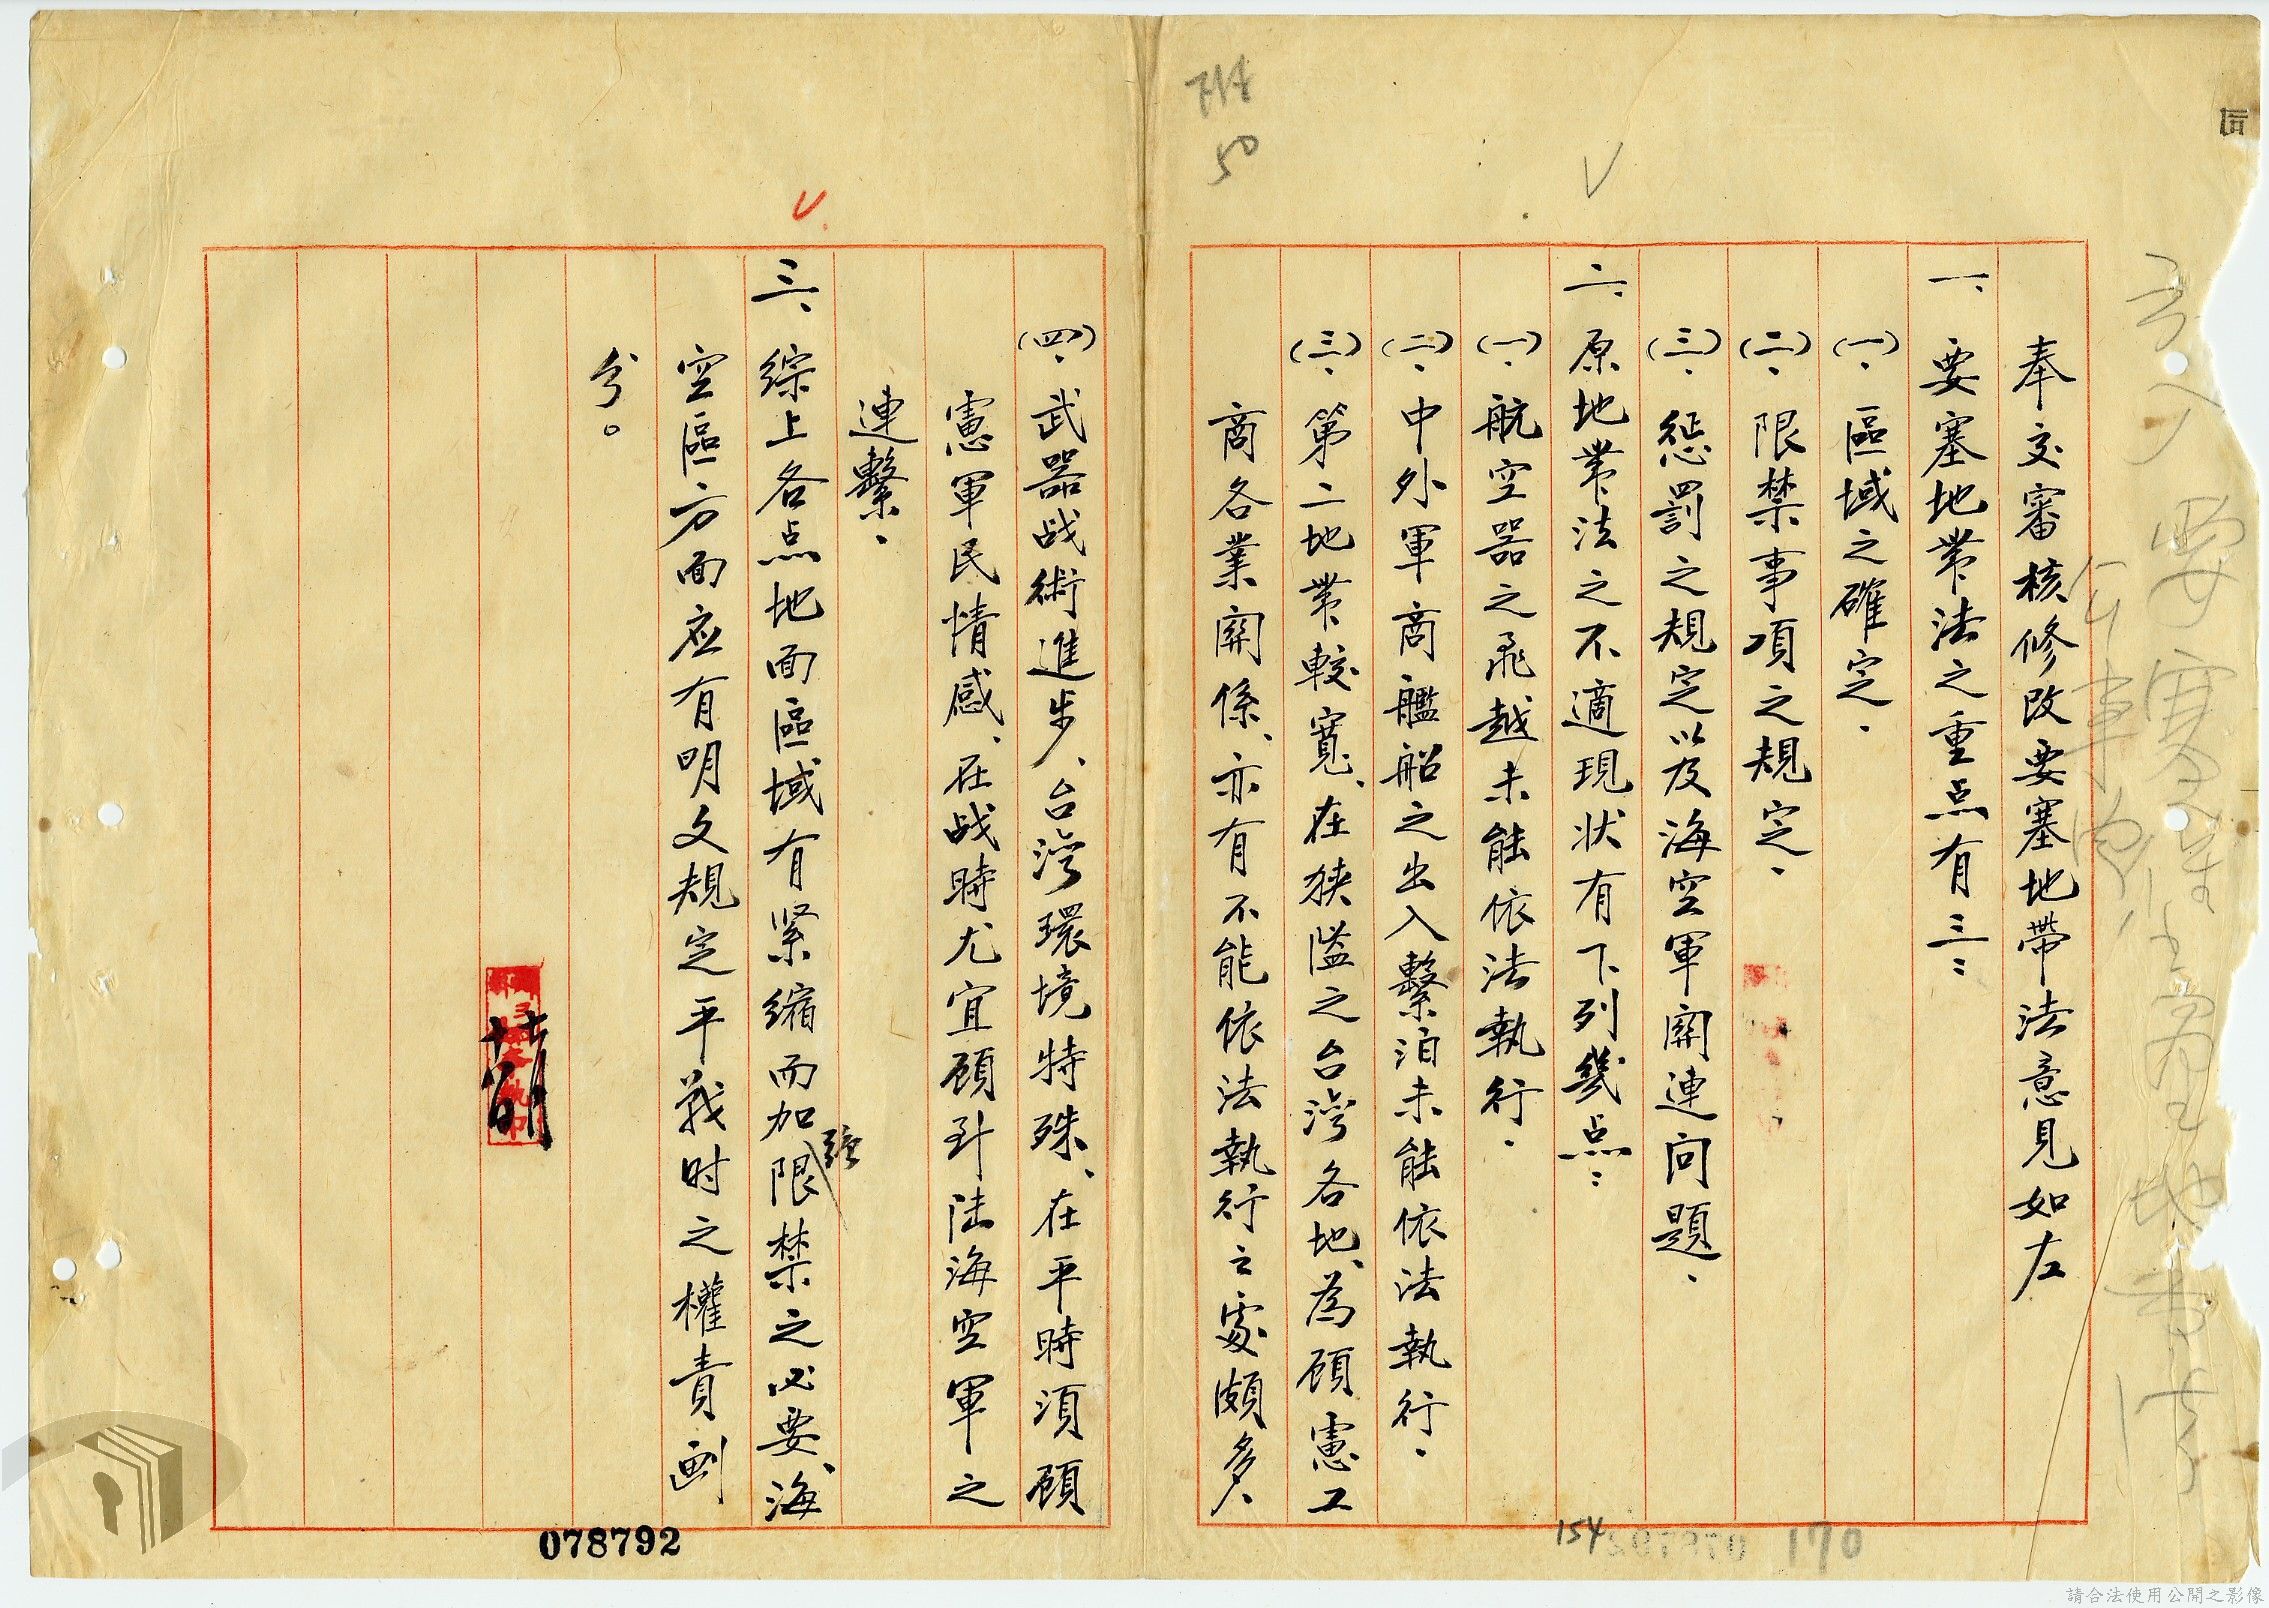 奉交審核修改要塞地帶法意見如左
一、要塞地带法之重点有三：
(一)、區域之確定、
(二)、限禁事項之規定、
(三)、惩罰之規定以及海空軍関連问題、
二、原地带法之不適現状有下列幾点：
(一)、航空器之飛越未能依法執行、
(二)、中外軍商艦船之出入繫泊未能依法執行、
(三)、第二地带較寬、在狹隘之台灣各地、為顾憲工
商各業関係、亦有不能依法執行之處頗多、
(四)、武器战術進步、台灣環境特殊、在平時須顾
憲軍民情感、在战時尤宜顾到陆海空軍之
連繫、
三、綜上各点地面區域有紧缩而加强限禁之必要、海
空區方面应有明文規定平戰时之權責劃
分。
十七/廿一
078792
714
50
154
170
請合法使用公開之影像